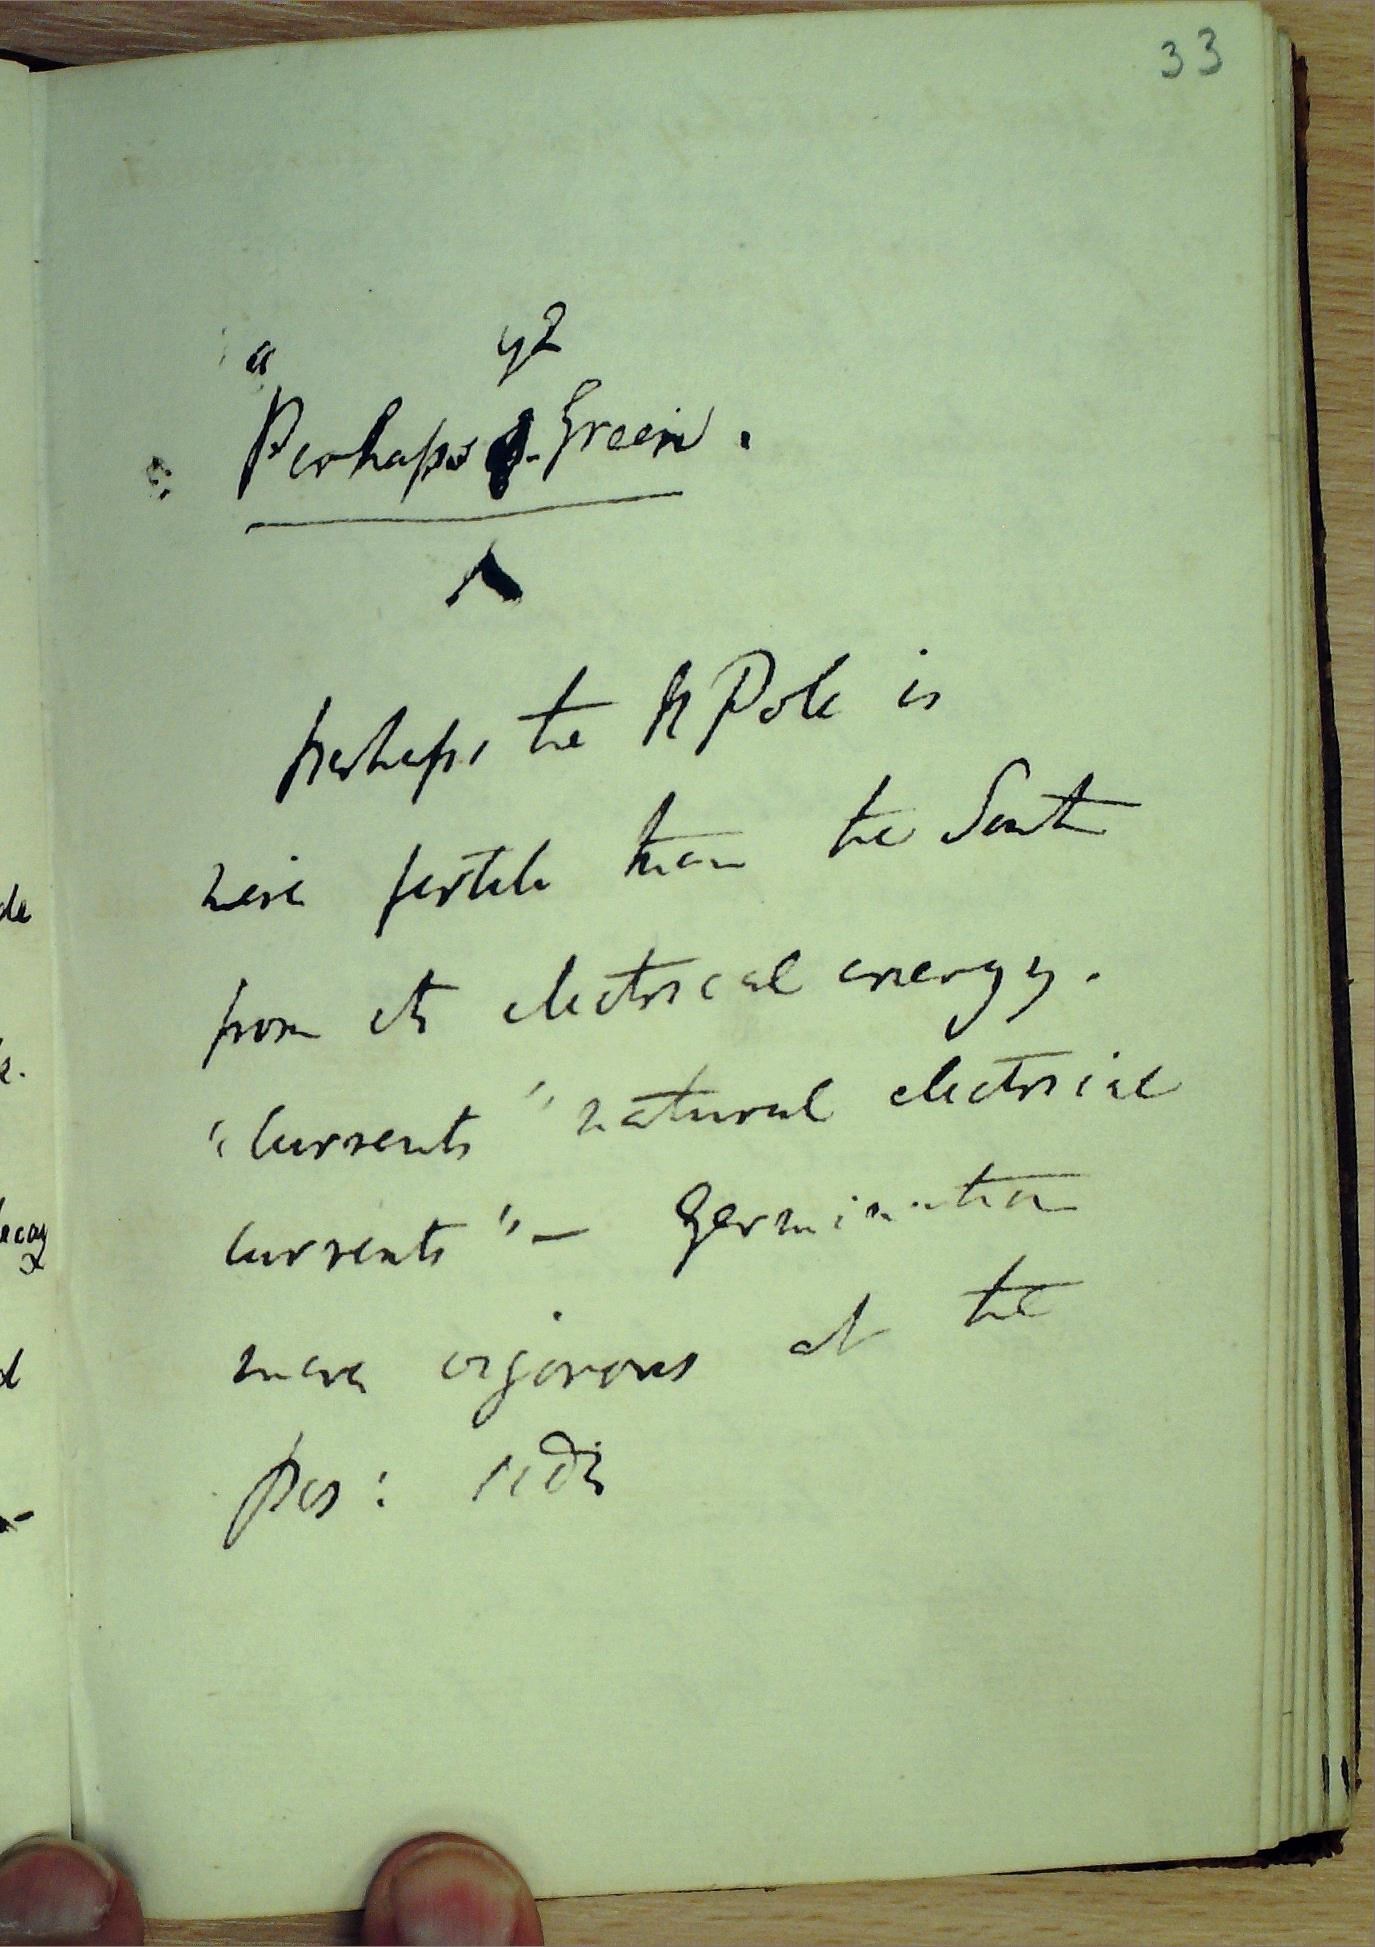 33
a y2
Perhaps Green.
perhaps the N Pole is
more fertile than the South
from its electrical energy.
"Currents" natural electrical
currents" – Germination
more vigorous at the
pos: side
de
e.
decay
d